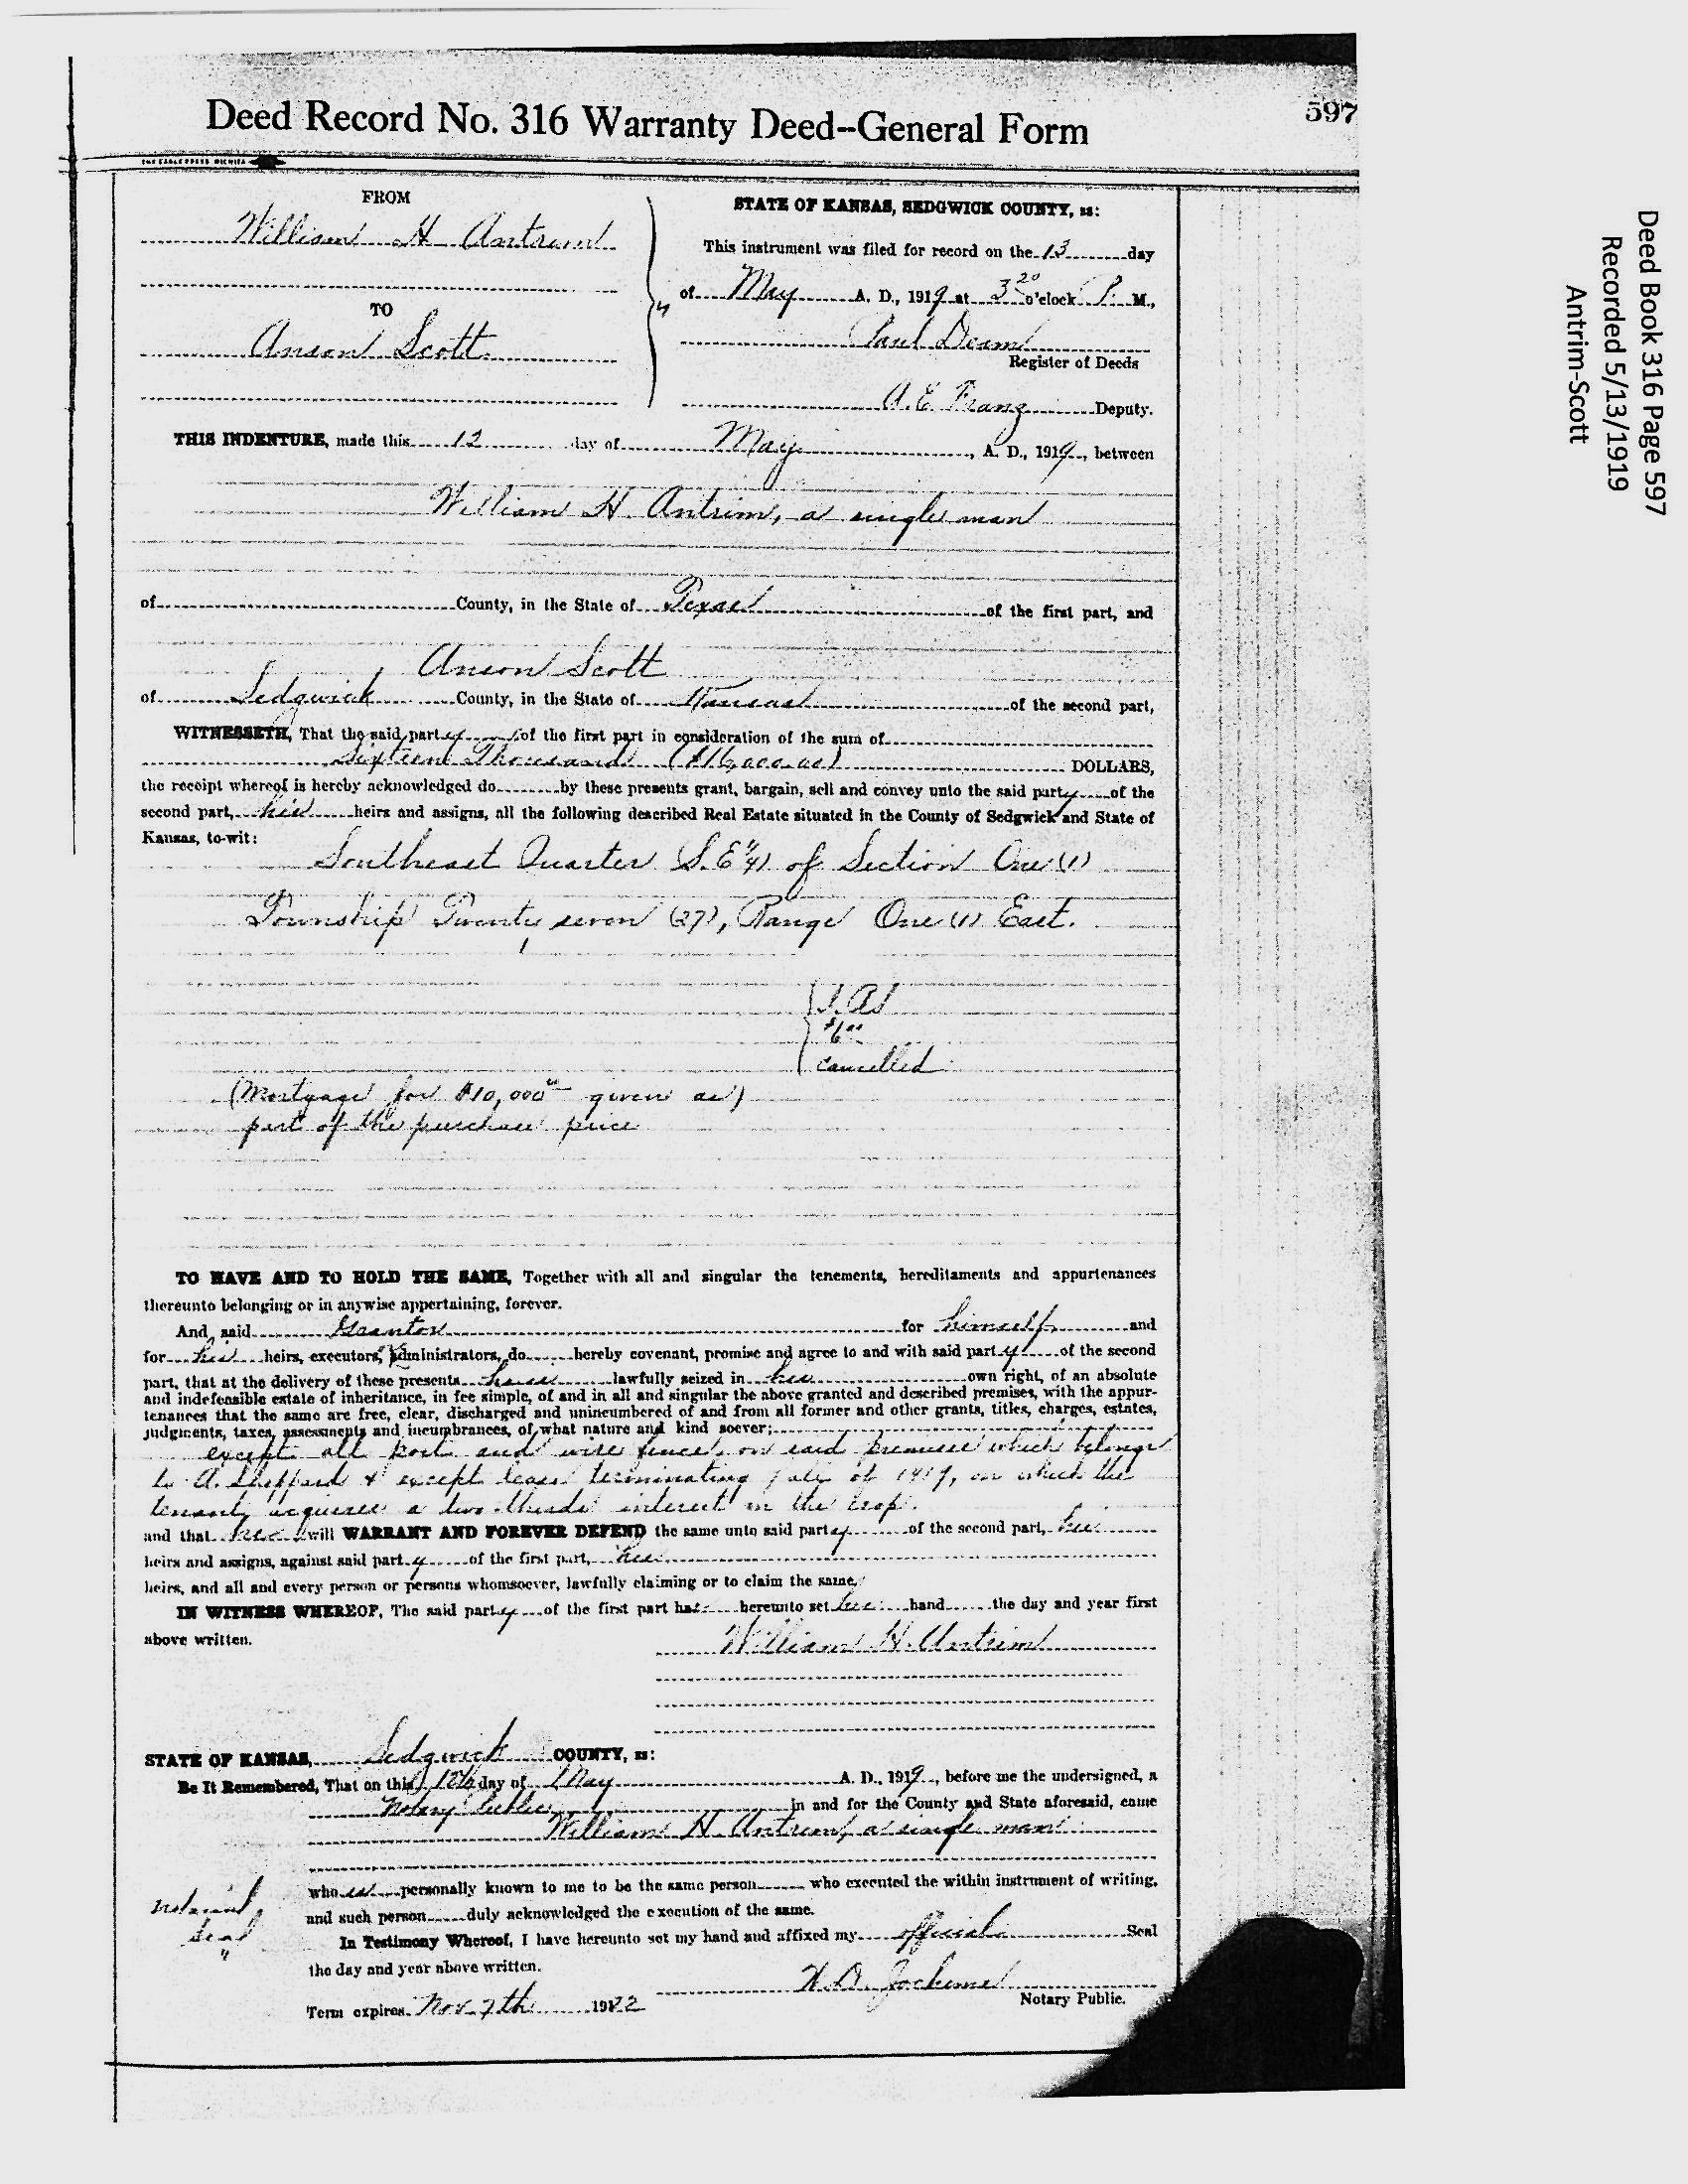 Deed Record No. 316 Warranty Deed--General Form
597
THE EAGLE PRESS WICHITA
FROM
William H Antrim
TO
Anson Scott
STATE OF KANSAS, SEDGWICK COUNTY, ss:
This instrument was filed for record on the 13 day
of May A. D., 1919 at 3 20 o'clock P. M.,
Register of Deeds
A. E. Franz Deputy.
THIS INDENTURE, made this 12 day of May, A. D., 1919, between
William H. Antrim, a single man
of County, in the State of Texas of the first part, and
Anson Scott
of Sedgwick County, in the State of Kansas of the second part,
WITNESSETH, That the said party of the first part in consideration of the sum of
Sixteen Thousand ($16,000.00) DOLLARS,
the receipt whereof is hereby acknowledged do by these presents grant, bargain, sell and convey unto the said party of the
second part, his heirs and assigns, all the following described Real Estate situated in the County of Sedgwick and State of
Kansas, to-wit:
Southeast Quarter (S.E¼) of Section One (1)
Township Twenty seven (27), Range One (1) East.
$6 00
cancelled
(Mortgage for $10,000 00 given as)
part of the purchase price
TO HAVE AND TO HOLD THE SAME, Together with all and singular the tenements, hereditaments and appurtenances
thereunto belonging or in anywise appertaining, forever.
And said Grantor for himself and
for his heirs, executors, administrators, do hereby covenant, promise and agree to and with said party of the second
part, that at the delivery of these presents lawfully seized in his own right, of an absolute
and indefeasible estate of inheritance, in fee simple, of and in all and singular the above granted and described premises, with the appur-
tenances that the same are free, clear, discharged and unincumbered of and from all former and other grants, titles, charges, estates,
judgments, taxes, assessments and incumbrances, of what nature and kind soever;
except all post and wire fence, on said premises which belongs
to A. Sheppard & except lease terminating of 1919, on which the
tenants acquires a two-thirds interest in the crop.
and that he will WARRANT AND FOREVER DEFEND the same unto said party of the second part, his
heirs and assigns, against said party of the first part, his
heirs, and all and every person or persons whomsoever, lawfully claiming or to claim the same.
IN WITNESS WHEREOF, The said party of the first part has hereunto set his hand the day and year first
above written.
William H. Antrim
STATE OF KANSAS, Sedgwick COUNTY, ss:
Be It Remembered, That on this 12th day of May A. D., 1919, before me the undersigned, a
Notary Public in and for the County and State aforesaid, came
William H. Antrim, a single man
who is personally known to me to be the same person who executed the within instrument of writing,
and such person duly acknowledged the execution of the same.
Notarial
Seal
In Testimony Whereof, I have hereunto set my hand and affixed my official Seal
the day and year above written.
Notary Public.
Term expires Nov. 7th 1922
Deed Book 316 Page 597
Recorded 5/13/1919
Antrim-Scott